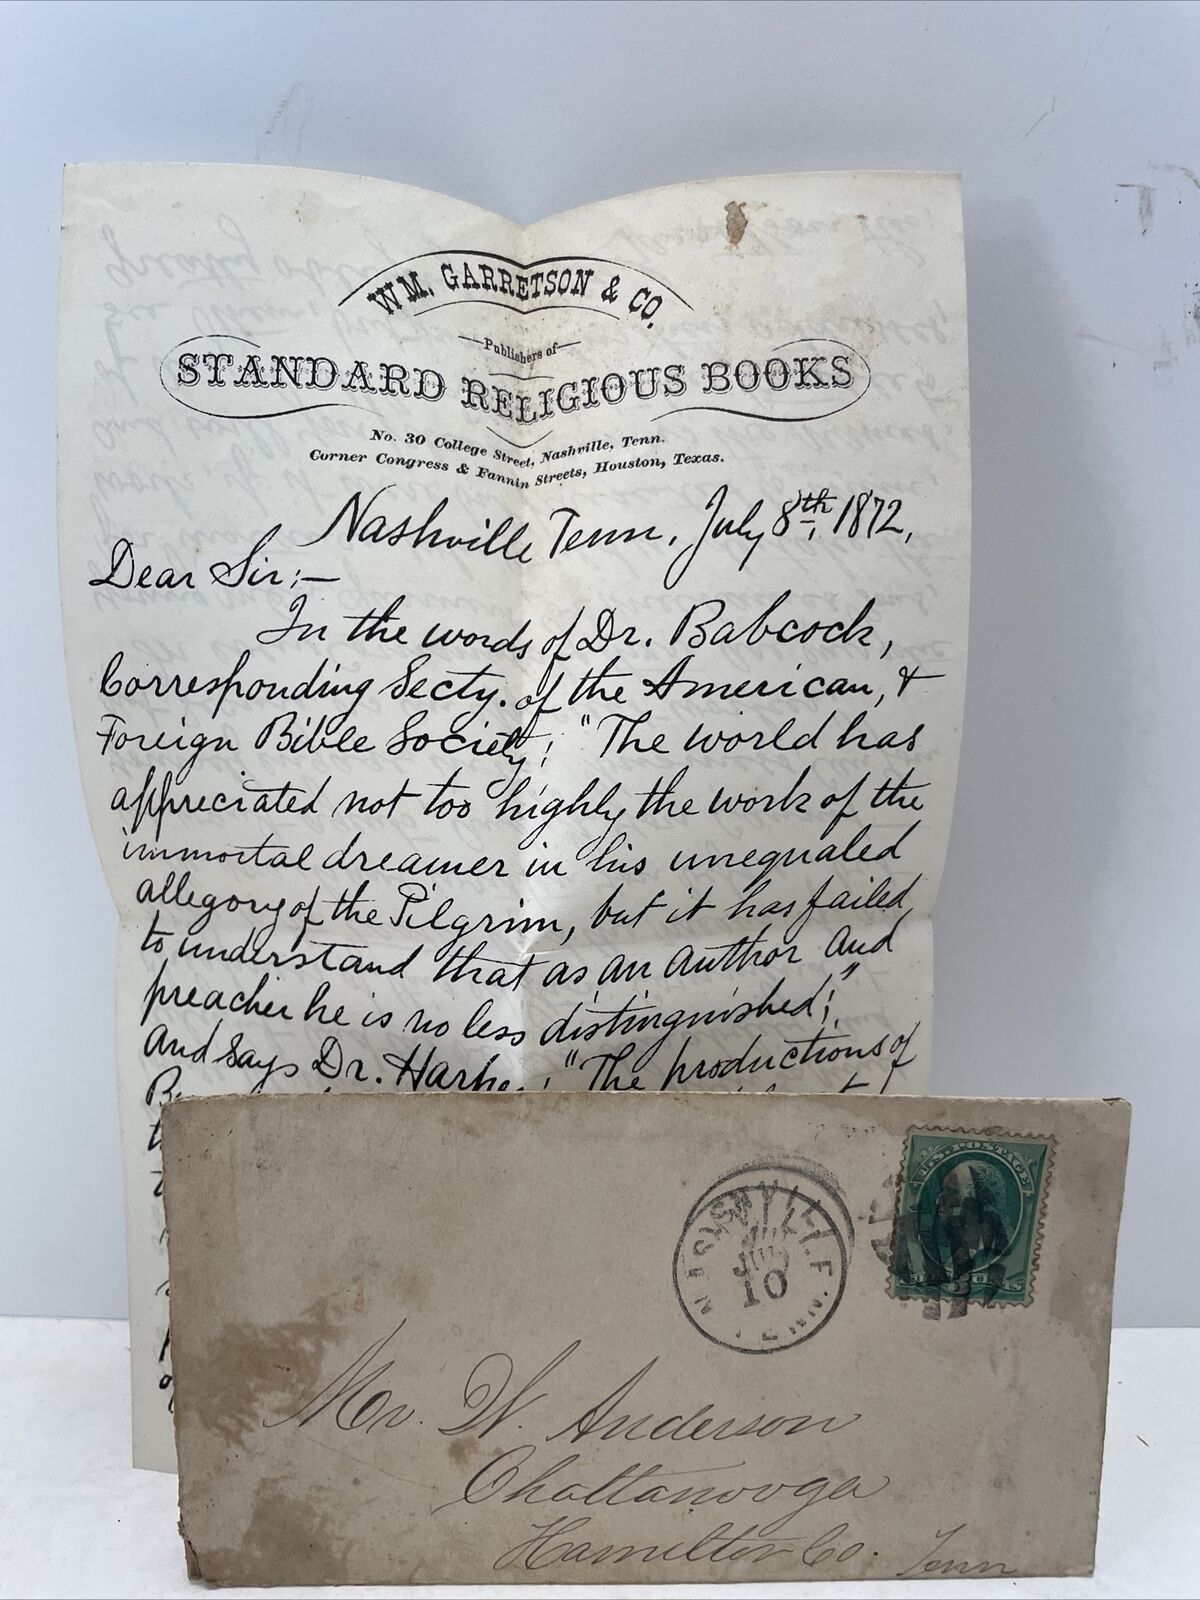 WM. GARRETSON & CO.
Publishers of
STANDARD RELIGIOUS BOOKS
No. 30 College Street, Nashville, Tenn.
Corner Congress & Fannin Streets, Houston, Texas.
Nashville Tenn, July 8th, 1872,
Dear Sir:—
In the words of Dr. Babcock,
Corresponding Secty. of the American, &
Foreign Bible Society; "The world has
appreciated not too highly the work of the
immortal dreamer in his unequaled
allegory of the Pilgrim, but it has failed,
to understand that as an author and
preacher he is no less distinguished;"
and says Dr. : "The productions of
NASHVILLE
JUL
10
TENN.
U.S. POSTAGE
Mr. W. Anderson
Chattanooga
Hamilton Co. Tenn